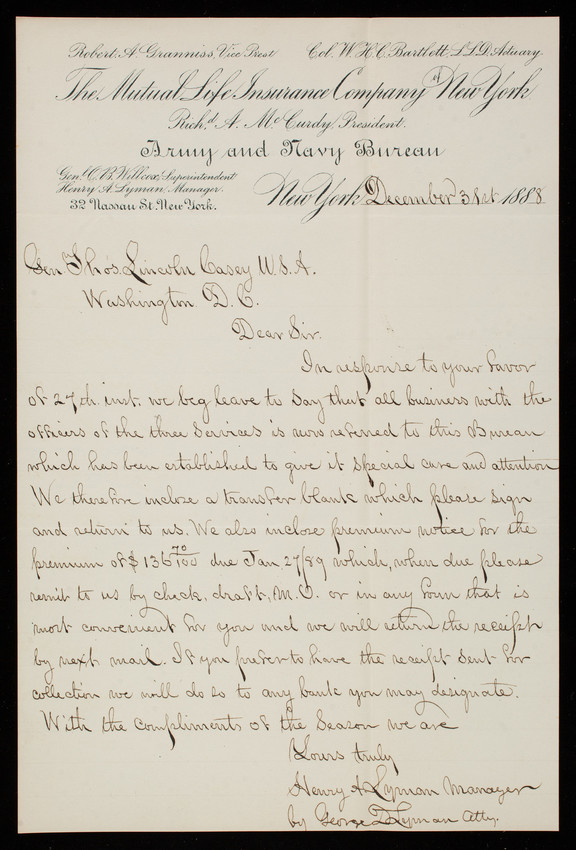 Robert A. Granniss, Vice Prest Col. W. H. C. Bartlett, LL.D. Actuary.
The Mutual Life Insurance Company of New York
Rich.d A. McCurdy, President.
Army and Navy Bureau
Genl. C. B. Willcox, Superintendent
Henry A. Lyman, Manager.
32 Nassau St. New York.
New York, December 31st 1888
Gen Thos. Lincoln Casey U.S.A.
Washington D.C.
Dear Sir.
In response to your favor
of 27th inst. we beg leave to say that all business with the
officers of the three Services is now referred to this Bureau
which has been established to give it special care and attention
We therefore inclose a transfer blank which please sign
and return to us. We also inclose premium notice for the
premium of $ 136 70/100 due Jan. 27/89 which, when due please
remit to us by check, draft, M.O. or in any form that is
most convenient for you and we will return the receipt
by next mail. If you prefer to have the receipt sent for
collection we will do so to any bank you may designate.
With the compliments of the Season we are
Yours truly
Henry A Lyman Manager
by George D Lyman Atty.